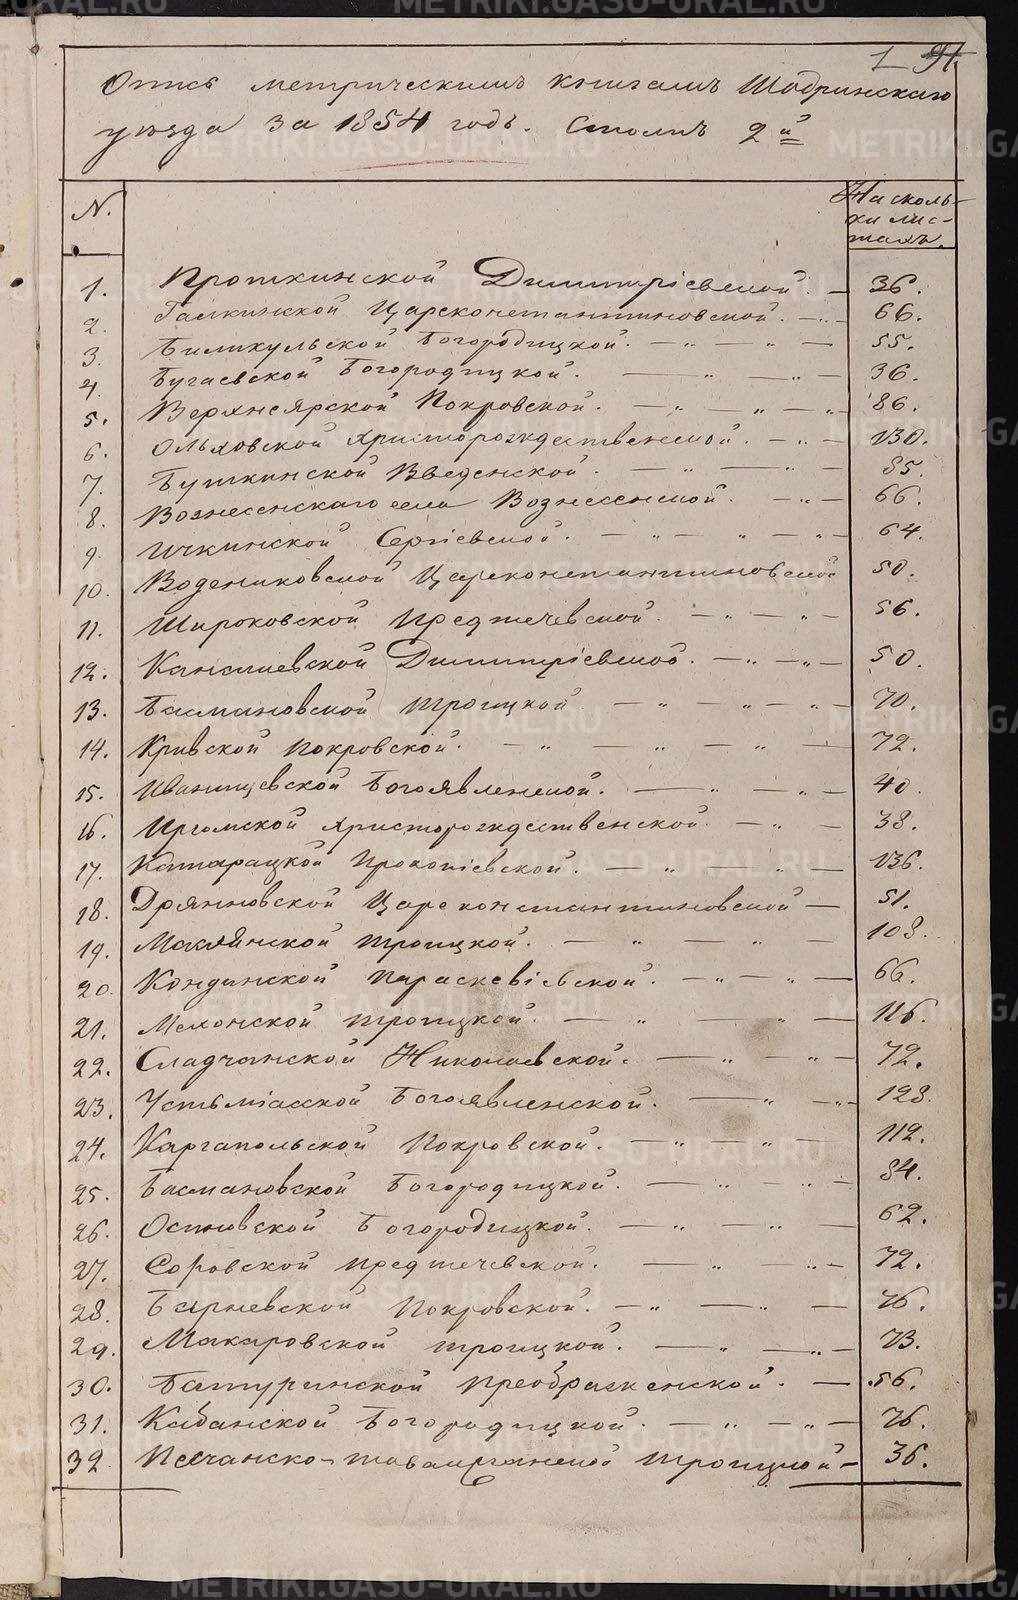 1 91.
Опись метрическимъ книгамъ Шадринскаго
уѣзда за 1854 годъ. Столъ 2й
N.
На сколь-
ки лис-
тахъ.
1. Проткинской Димитріевской. — 36.
2. Галкинской Цареконстантиновской. — „ — 66.
3. Біликульской Богородицкой. — „ — „ — 55.
4. Бугаевской Богородицкой. — „ — „ — 36.
5. Верхнеярской Покровской. — „ — „ — „ 86.
6. Ольховской Христорождественской. — „ — 130.
7. Буткинской Введенской. — „ — „ — 85.
8. Вознесенскаго села Вознесенской. — „ — 66.
9. Ичкинской Сергіевской. — „ — „ — „ — 64.
10. Водениковской Цареконстантиновской 50.
11. Широковской Предтечевской. — „ — „ — 56.
12. Канашевской Димитріевской. — „ — „ — 50.
13. Басмановской Троицкой — „ — „ — „ — 70.
14. Кривской Покровской. — „ „ — „ — 72.
15. Иванищевской Богоявленской. — „ — „ — 40.
16. Иргомской Христорождественской. — „ — 38.
17. Катарацкой Прокопіевской. — „ — „ — 136.
18. Дрянновской Цареконстантиновской — 51.
19. Маслянской Троицкой. — „ — „ — 108.
20. Кондинской Параскевіевской. — „ — „ — 66.
21. Мехонской Троицкой. — „ — „ — 116.
22. Сладчанской Николаевской. — „ — „ — 72.
23. Устьміасской Богоявленской. — „ — „ 128.
24. Каргапольской Покровской. — „ — „ — 112.
25. Басмановской Богородицкой. — „ — „ — 84.
26. Осиновской Богородицкой. — „ — „ — 62.
27. Соровской Предтечевской. — „ — „ — 72.
28. Барневской Покровской. — „ — „ — 76.
29. Макаровской Троицкой. — „ — „ — 73.
30. Батуринской Преображенской. — 56.
31. Кабанской Богородицкой. — „ — „ — 76.
32. Песчанско-таволжанской Троицкой — 36.
METRIKI.GASO-URAL.RU